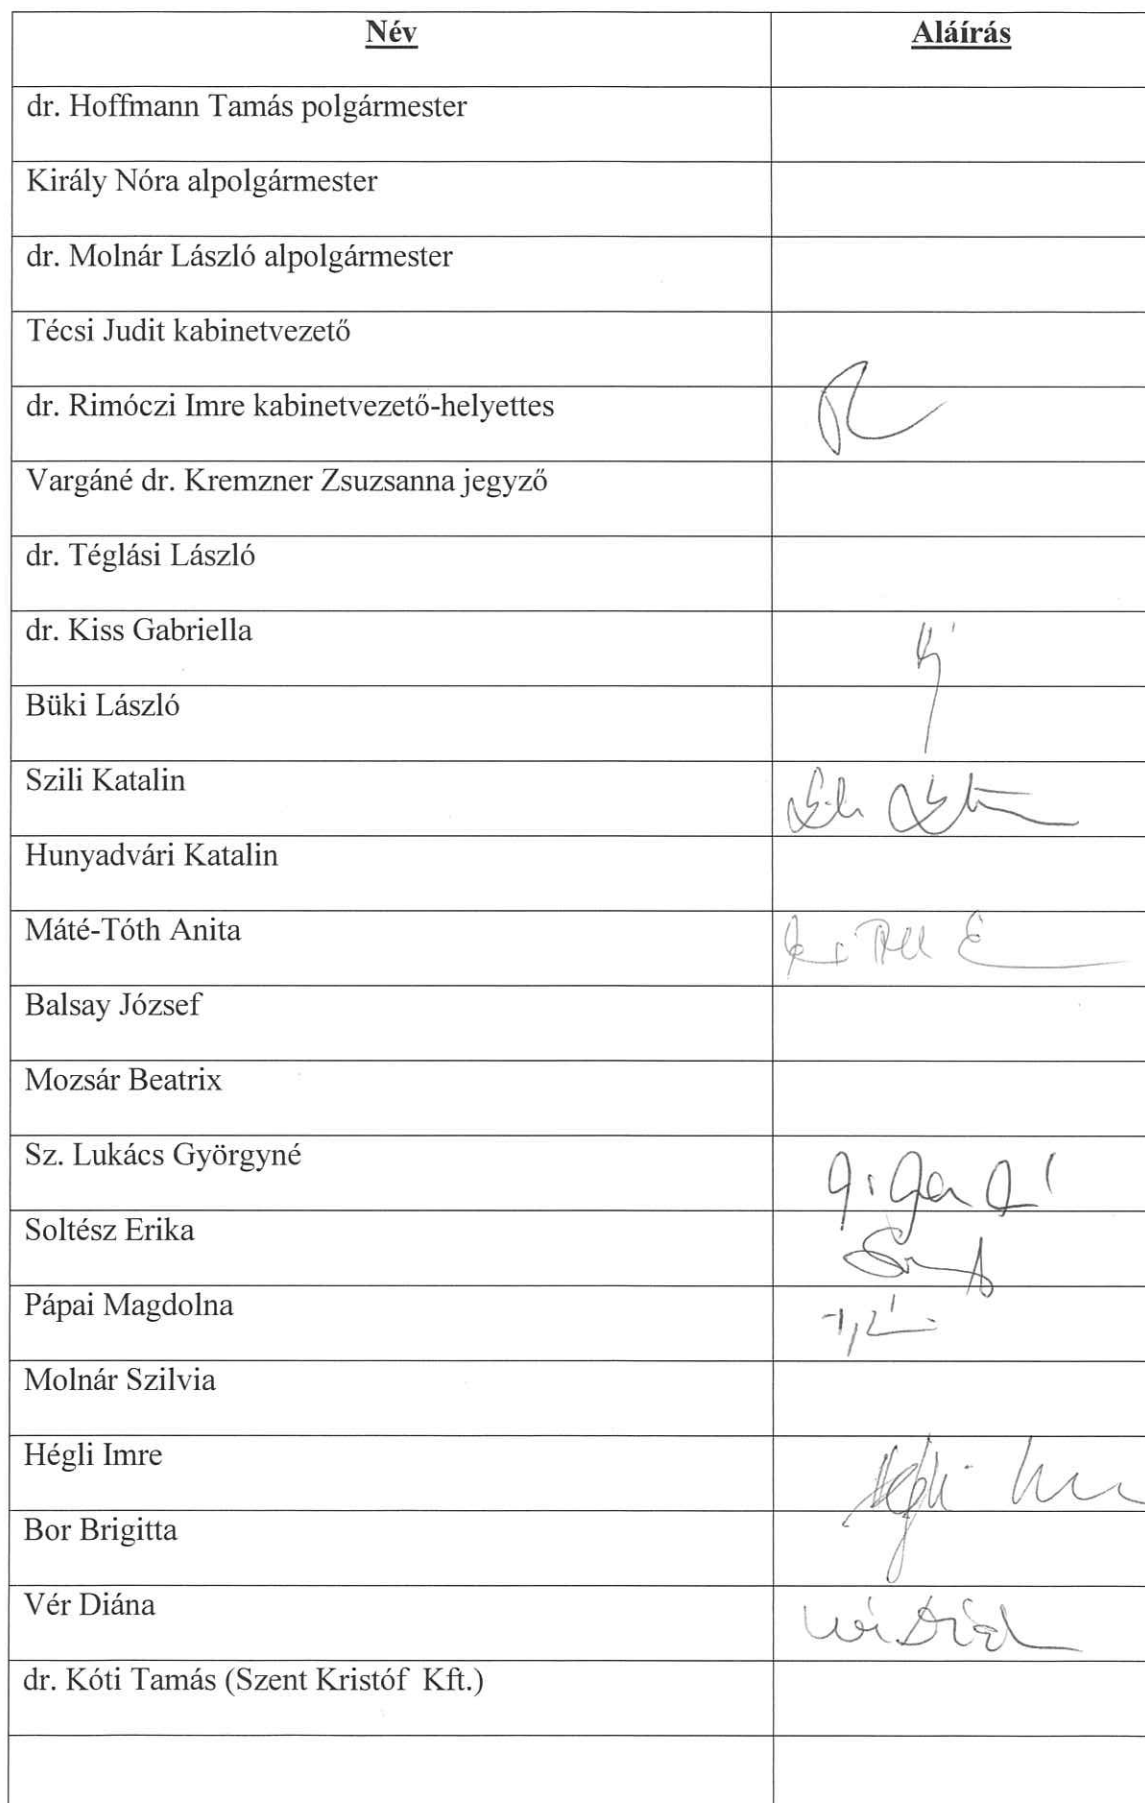 Név Aláírás
dr. Hoffmann Tamás polgármester
Király Nóra alpolgármester
dr. Molnár László alpolgármester
Técsi Judit kabinetvezető
dr. Rimóczi Imre kabinetvezető-helyettes
Vargáné dr. Kremzner Zsuzsanna jegyző
dr. Téglási László
dr. Kiss Gabriella
Büki László
Szili Katalin
Hunyadvári Katalin
Máté-Tóth Anita
Balsay József
Mozsár Beatrix
Sz. Lukács Györgyné
Soltész Erika
Pápai Magdolna
Molnár Szilvia
Hégli Imre
Bor Brigitta
Vér Diána
dr. Kóti Tamás (Szent Kristóf Kft.)